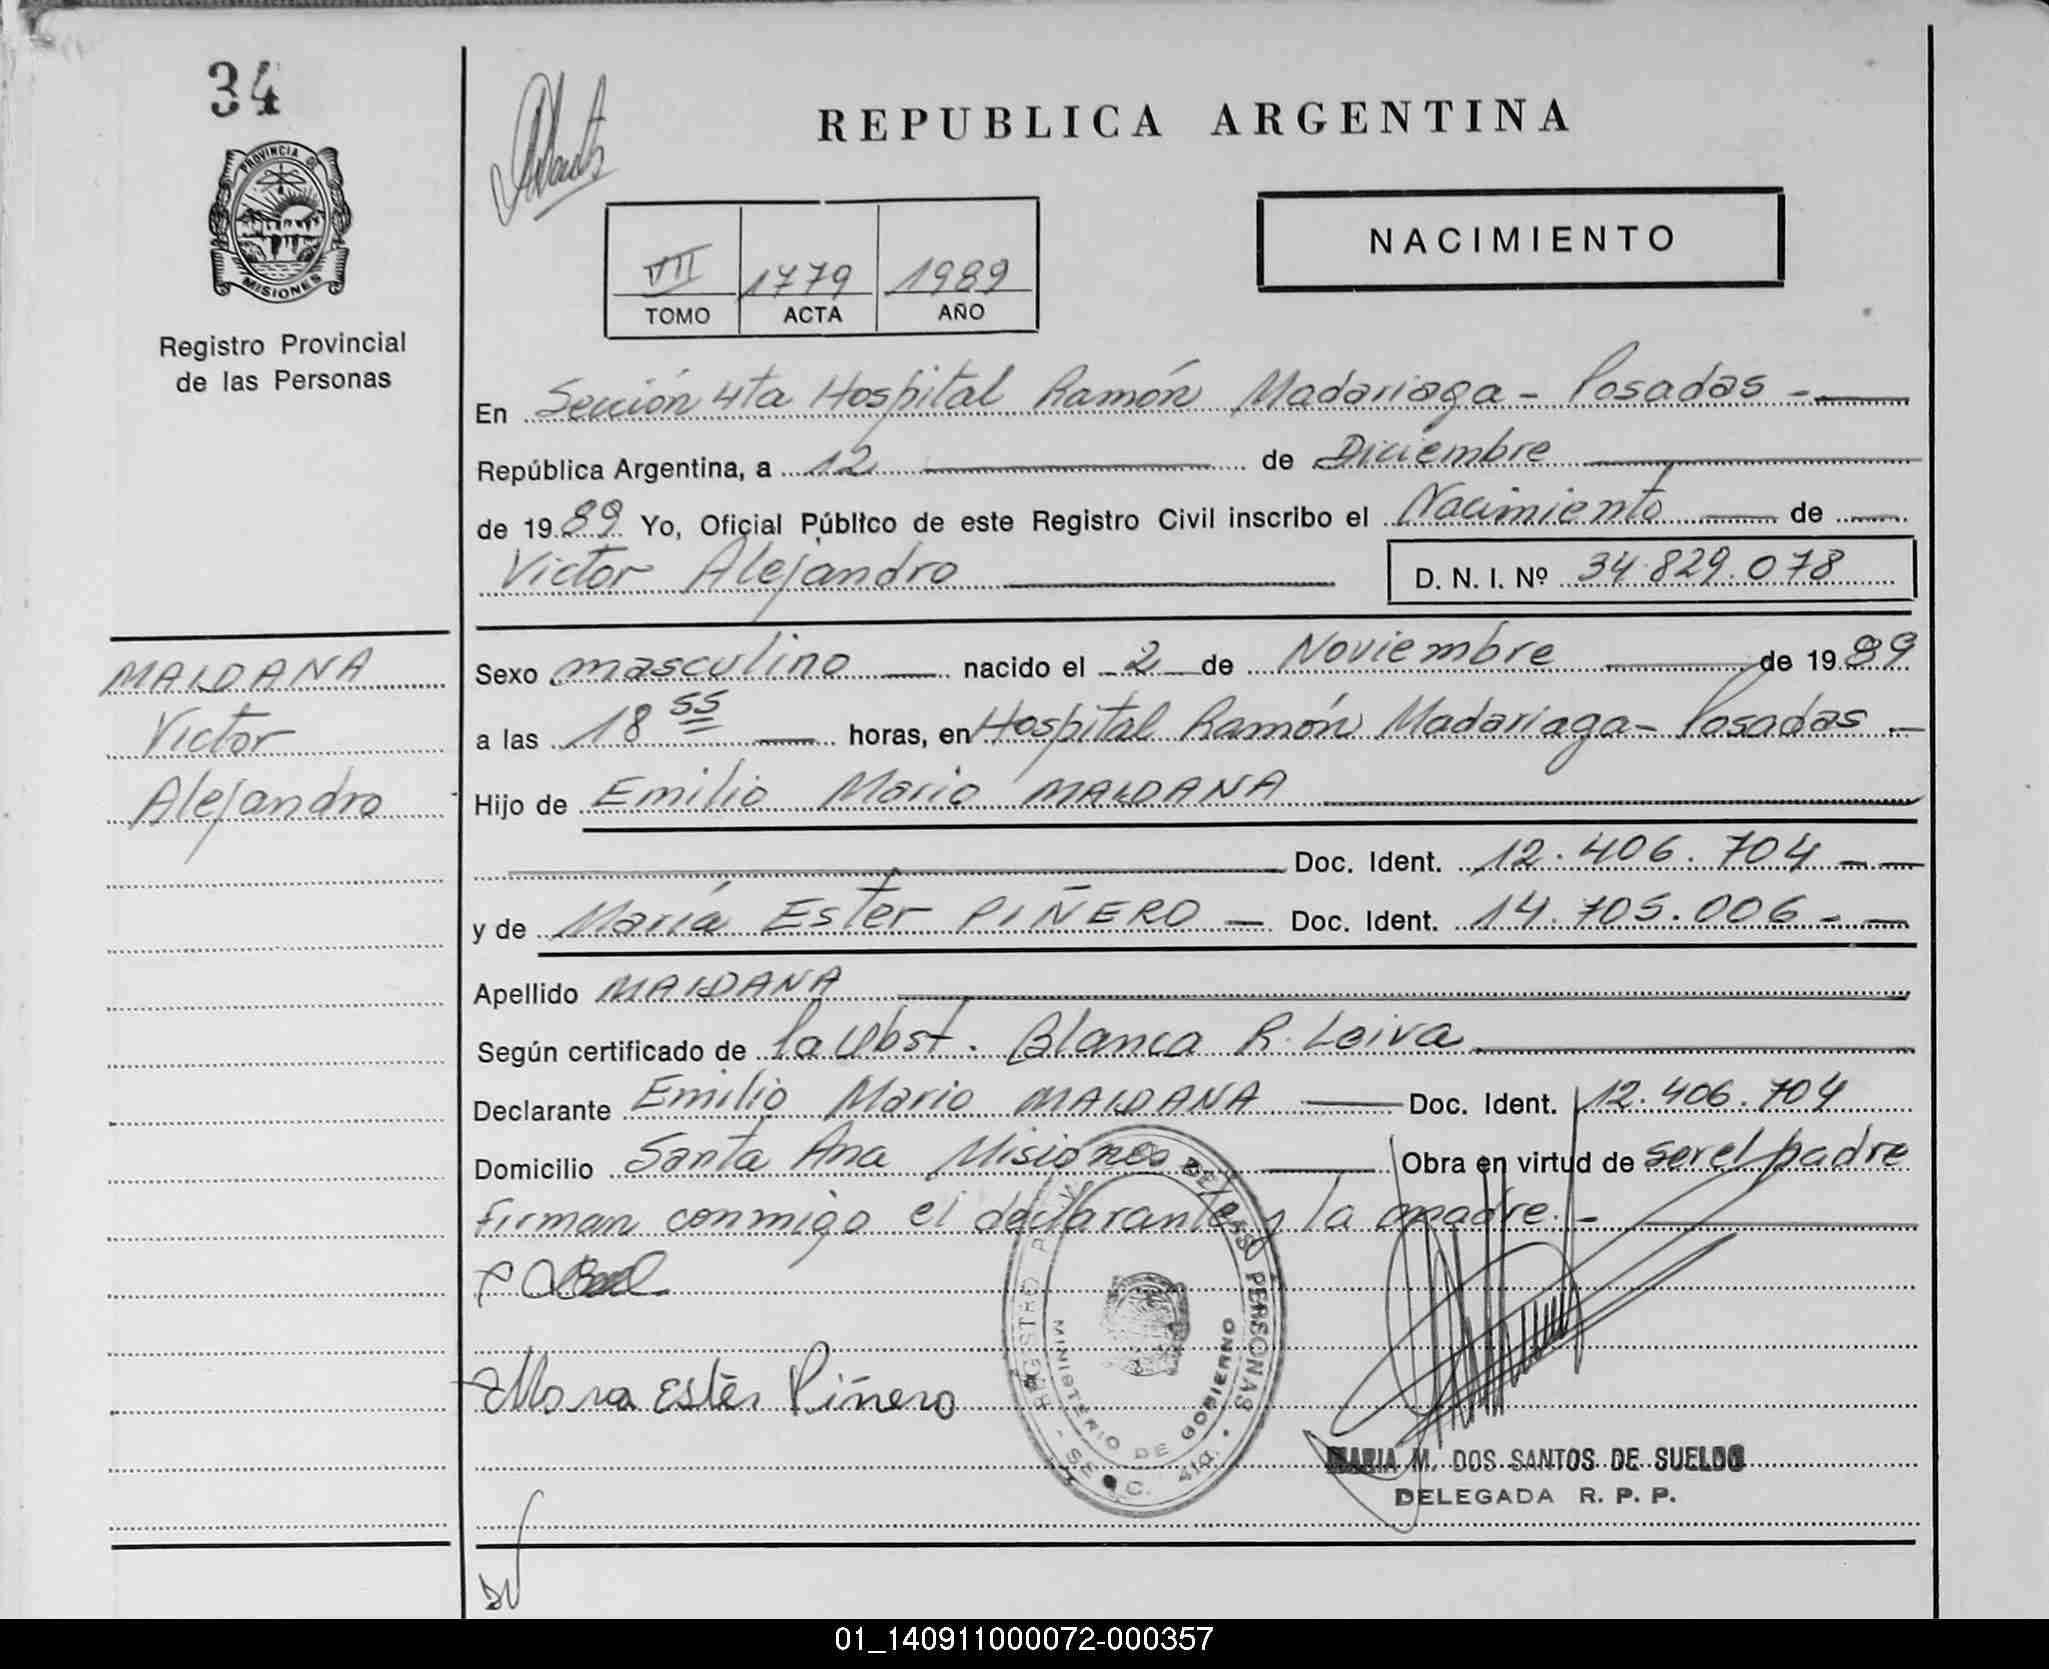 34
PROVINCIA DE
MISIONES
Registro Provincial
de las Personas
MALDANA
Victor
Alejandro
REPUBLICA ARGENTINA
NACIMIENTO
VII 1779 1989
TOMO ACTA AÑO
En Sección 4ta Hospital Ramón Madariaga - Posadas -
República Argentina, a 12 de Diciembre
de 1989 Yo, Oficial Público de este Registro Civil inscribo el Nacimiento de
Victor Alejandro D. N. I. Nº 34.829.078
Sexo masculino nacido el 2 de Noviembre de 1989
a las 18 55 horas, en Hospital Ramón Madariaga - Posadas -
Hijo de Emilio Mario MALDANA
Doc. Ident. 12.406.704 - -
y de María Ester PIÑERO - Doc. Ident. 14.705.006 - -
Apellido MALDANA
Según certificado de la Obst. Blanca R. Leiva
Declarante Emilio Mario MALDANA Doc. Ident. 12.406.704
Domicilio Santa Ana Misiones Obra en virtud de ser el padre
firman conmigo el declarante y la madre. -
Ester Piñero
REGISTRO DE LAS PERSONAS
MINISTERIO DE GOBIERNO
MARIA M. DOS SANTOS DE SUELDO
DELEGADA R. P. P.
01_140911000072-000357